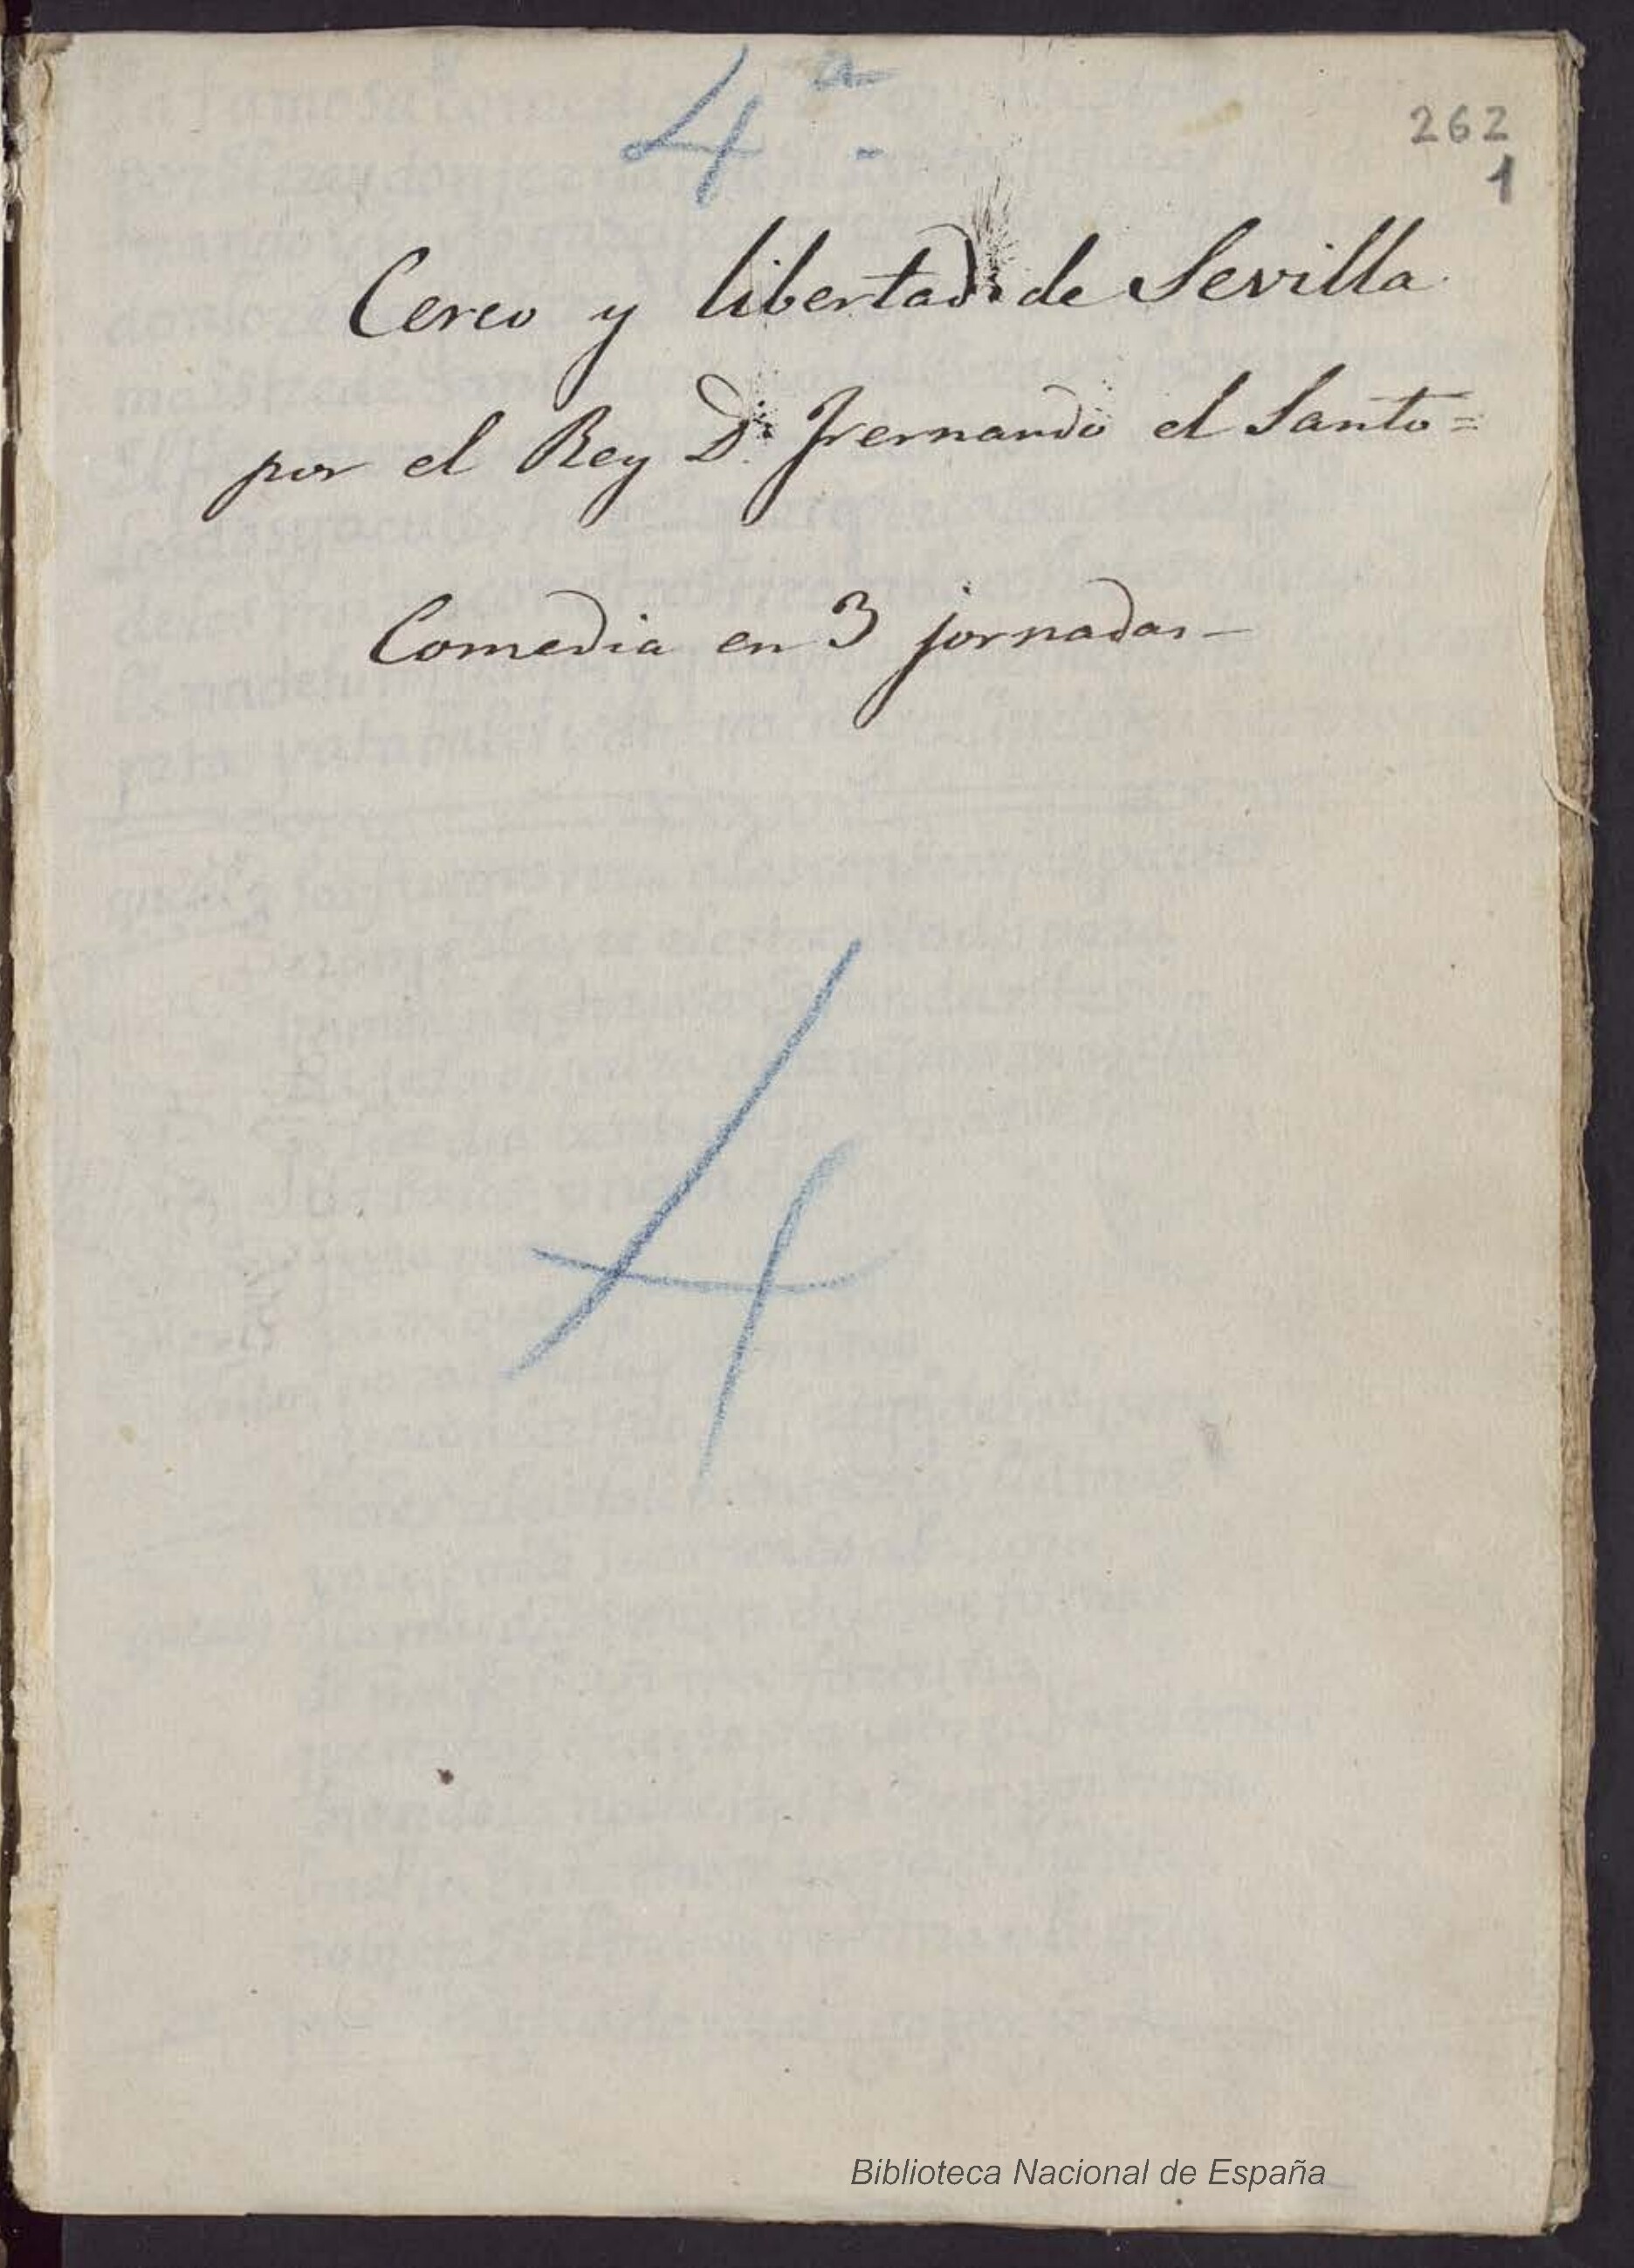 4ª.
262
1
Cerco y libertad de Sevilla
por el Rey D.n Fernando el Santo=
Comedia en 3 jornadas-
4
Biblioteca Nacional de España